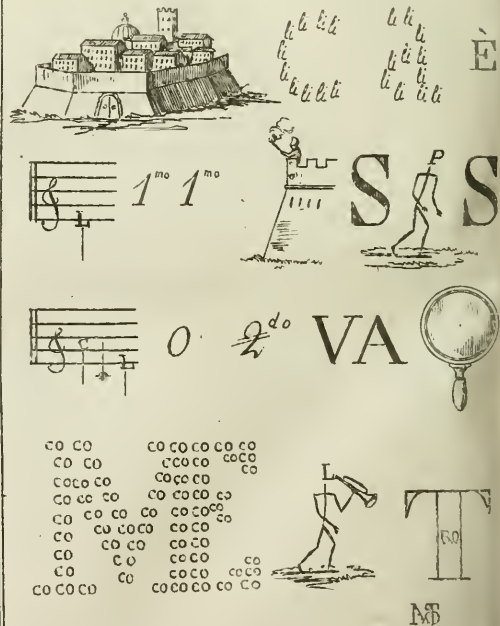 li li li li li
li li
li li li li
li li li
li li li li li li li
È
L 1mo 1mo S P S
C L O 2do VA
CO CO CO CO CO CO CO
CO CO CCO CO COCO
CO
COCO CO CO CO CO
CO CO CO CO CO CO CO
CO CO CO CO CO CO CO
CO CO CO CO CO CO CO
CO CO CO CO CO
CO CO CO CO CO
CO CO CO CO COCO
CO CO CO CO CO CO CO
L T
RO